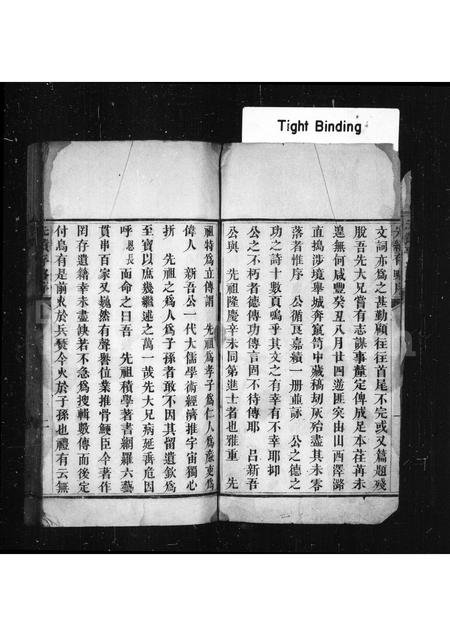 Tight Binding
文詞亦爲之甚勤顧往往首尾不完或又篇題殘
脫吾先大兄嘗有志謀事釐定俾成足本荏苒未
遑無何咸豐癸丑八月廿四逆匪突由山西澤潞
直搗涉境舉城奔竄笥中藏稿刧灰殆盡其未零
落者惟序 公循良嘉績一册並詠 公之德之
功之詩十數頁嗚乎其文之有幸有不幸耶抑
公之不朽者德傳功傳言固不待傳耶 呂新吾
公與 先祖隆慶辛未同第進士者也雅重 先
祖特爲立傳謂 先祖爲孝子爲仁人爲廉吏爲
偉人 新吾公一代大儒學術經濟推宇宙獨心
折 先祖之爲人爲子孫者敢不因其留遺欽爲
至寶以庶幾繼述之萬一哉先大兄病延善危因
呼 長 而命之曰吾 先祖積學著書網羅六藝
貫串百家又巍然有聲譽位業推骨鯁臣今著作
罔存遺籍幸未盡缺若不急爲搜輯數傳而後定
付烏有是前火於兵燹今火於子孫也禮有云無